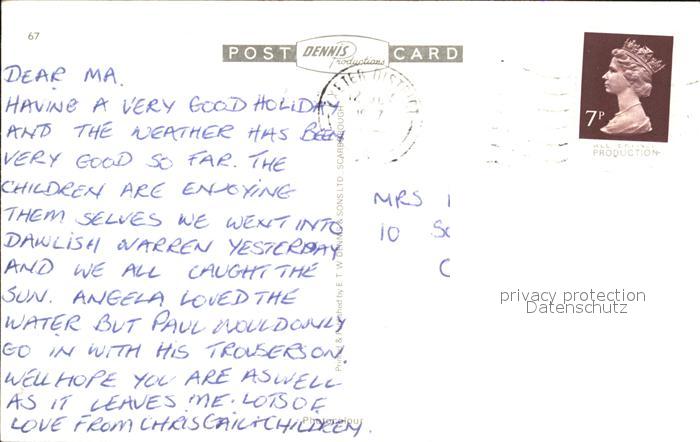 67
POST DENNIS Productions CARD
DEAR MA.
HAVING A VERY GOOD HOLIDAY
AND THE WEATHER HAS BEEN
VERY GOOD SO FAR. THE
CHILDREN ARE ENJOYING
THEM SELVES WE WENT INTO
DAWLISH WARREN YESTERDAY
AND WE ALL CAUGHT THE
SUN. ANGELA LOVED THE
WATER BUT PAUL WOULD ONLY
GO IN WITH HIS TROUSERS ON
WELL HOPE YOU ARE AS WELL
AS IT LEAVES ME. LOTS OF
LOVE FROM CHRIS GAIL + CHILDREN.
Printed & Published by E T W DENNIS & SONS LTD SCARBOROUGH
Photocolour
EXETER DISTRICT
7P
PRODUCTION
MRS
10
privacy protection
Datenschutz